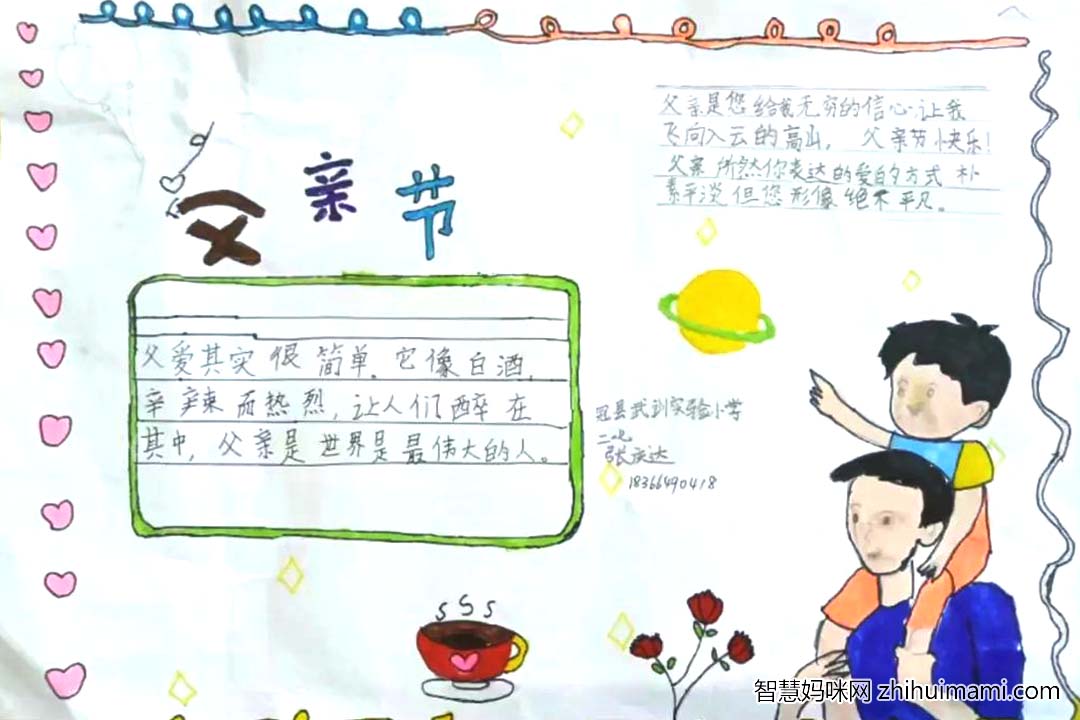 父亲节
父亲是您给我无穷的信心,让我
飞向入云的高山， 父亲节快乐!
父亲 所然你表达的爱的方式 朴
素平淡但您形像绝不平凡。
父爱其实很简单.它像白酒,
辛辣而热烈,让人们醉在
其中,父亲是世界是最伟大的人。
冠县武训实验小学
张庆达
18366490418
智慧妈咪网 zhihuimami.com